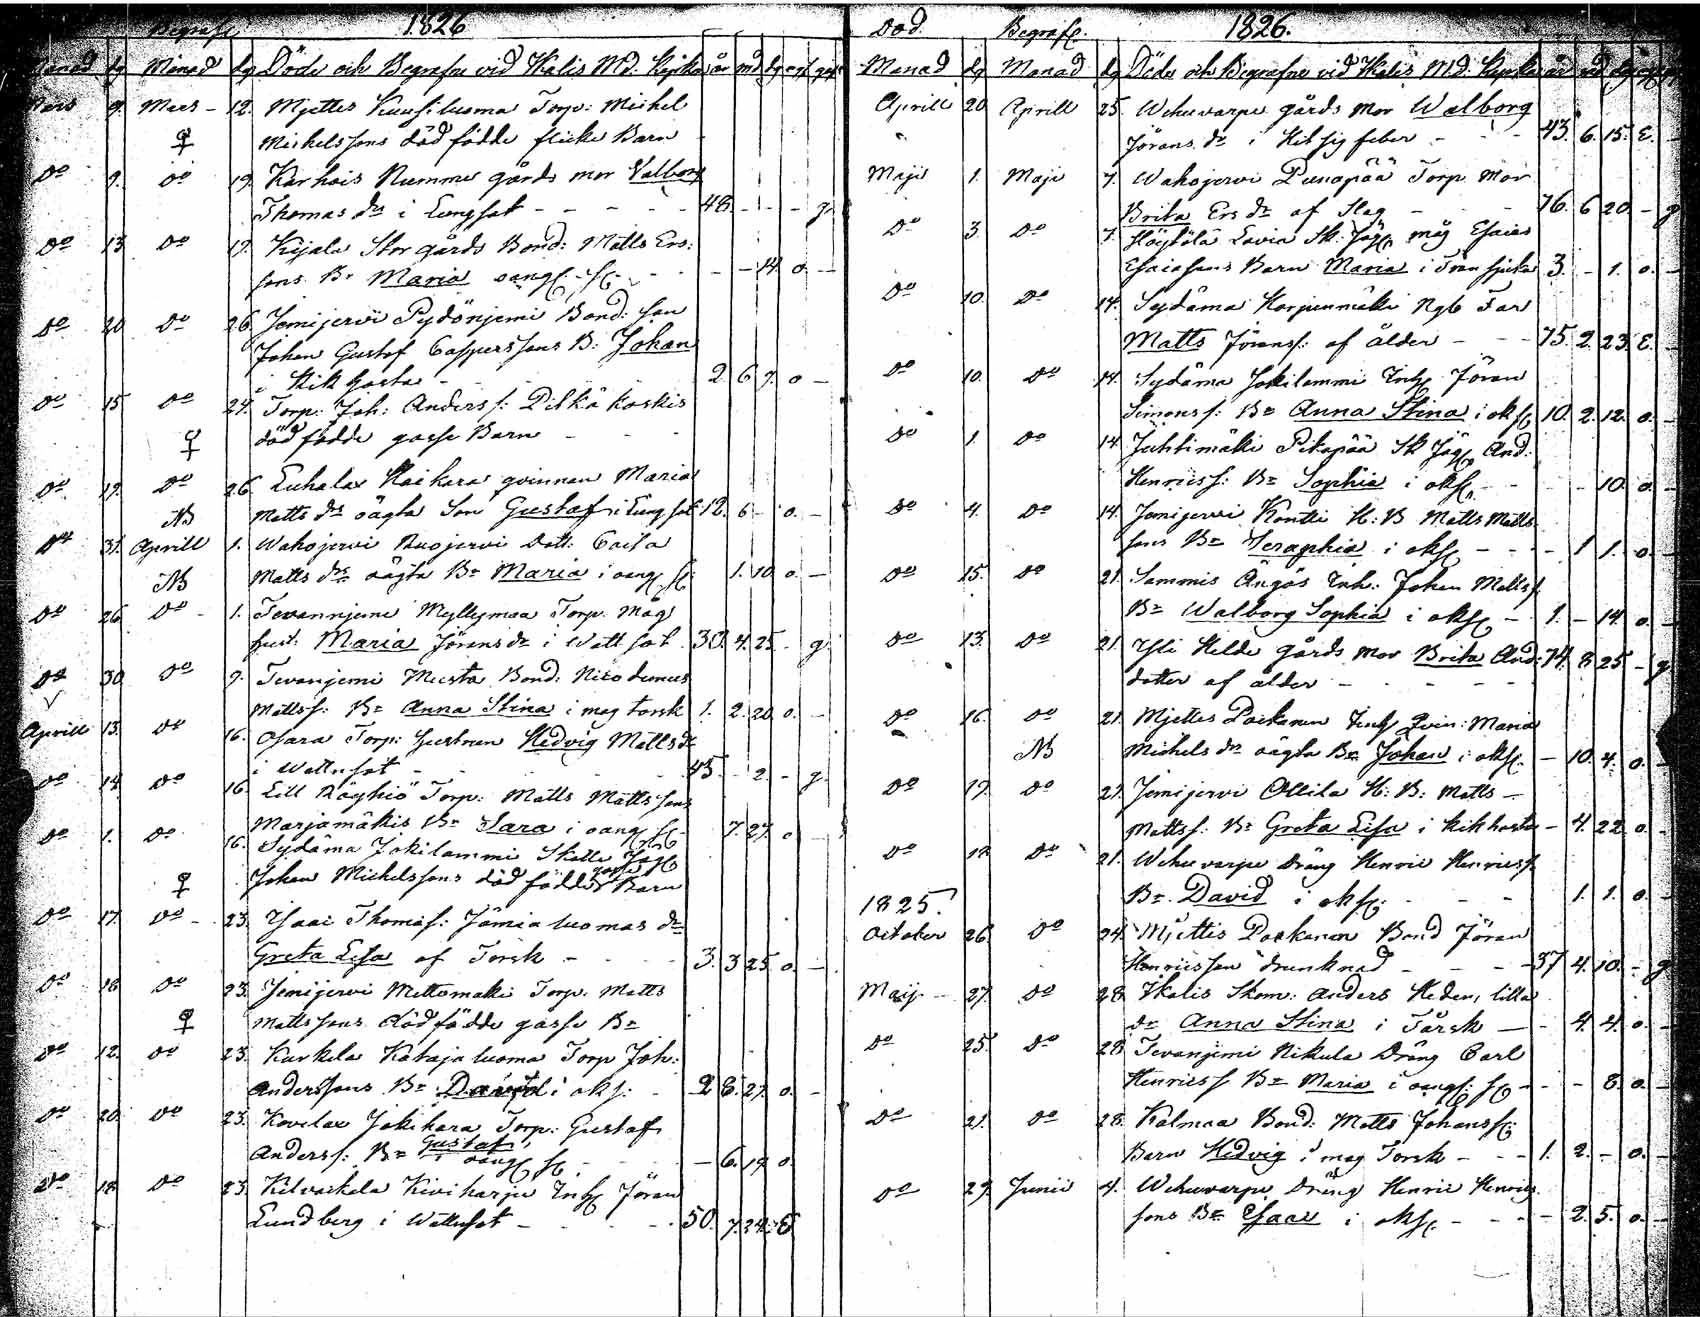 Begrafe 1826
Månad dg Månad dg Döde och Begrafne vid Ikalis Md: Kyrka år md dg
Mars 9. Mars 12. Mjettes Kuusiluoma Torp: Michel
♀ Michelssons död födde flicke Barn
Do 9. Do 19. Karhois Numme gårds mor Valborg
Thomas dr i Lungsot 48. g.
Do 13 Do 19. Kijala Storgårds Bond: Matts Ers:
sons Bn Maria oang 14. o.
Do 20 Do 26. Jemijervi Pydönjemi Bond: son
Johan Gustaf Casperssons B: Johan
i Kikhosta 2 6 7. o
Do 15 Do 24. Torp: Joh: Anderss: Pitkäkoskis
♀ död födde gosse Barn
Do 19. Do 26. Luhalax Kaikara qvinnan Maria
NB Matts dr oägta Son Gustaf i Lungsot 12. 6 o.
Do 31. Aprill 1. Wahojervi Ruojervi Dott: Caisa
NB Matts drs oägta Bn Maria i oang 1. 10 o
Do 26 Do 1. Tevannjemi Myllymaa Torp. måg
hust: Maria Jörans dr i Wattsot 30. 4. 25 g.
Do 30 Do 9. Tevanjemi Musta Bond: Nicodemus
Mattss: Bn Anna Stina i mag torsk 1. 2. 20. o.
Aprill 13. Do 16. Osara Torp: hustrun Hedvig Matts dr
i Wattusot 45. 2 g.
Do 14. Do 16. Lill Röyhiö Torp: Matts Matts sons
Marjamäkis Bn Sara i oang 7. 27. o
Do 1. Do 16. Sydäma Jokilammi Skatte
♀ Johan Michelssons död födde gosse Barn
Do 17. Do 23. Isaac Thomas: Jämialuomas dr
Greta Lisa af Torsk 3. 3 25 o.
Do 18 Do 23. Jemijervi Mettomäki Torp. Matts
♀ Mattssons död födde gosse Bn
Do 12. Do 23. Kurkela Katajaluoma Torp Joh:
Anderssons Bn David i oks: 2 8. 27. o.
Do 20. Do 23. Kovelax Jokihara Torp: Gustaf
Anderss: Bn Gustaf i oang 6. 19. o.
Do 18. Do 23. Kilvackala Kiviharju Inh Jöran
Lundberg i Wattusot 50. 7. 24. E
Död. Begrafe. 1826.
Månad dg Månad dg Döde och Begrafne vid Ikalis Md. Kyrka år md dg
Aprill 20. Aprill 25. Wehuvarpe gårds mor Walborg
Jörans dr i Hitsig feber 43. 6. 15. E.
Maji 1. Maji 7. Wahojervi Punapää Torp mor
Brita Ers dr af Slag 76. 6 20. g
Do 3. Do 7. Höytölä Lavia Sk: Jäg: måg Esaias
Esaiasons Barn Maria i 3. 1. o.
Do 10. Do 14. Sydäma Korpenmäki Ngb Far
Matts Jöranss: af ålder 75 2. 23. E.
Do 10. Do 14. Sydäma Jokilammi Inh Jöran
Simonss: Bn Anna Stina i oks 10. 2. 12. o.
Do 1. Do 14. Juhtimäki Pitkäpää Sk Jäg And:
Henricss: Bn Sophia i oks 10. o.
Do 4. Do 14. Jemijervi Kontti H: B Matts Matts
sons Bn Seraphia i oks 1 1. o.
Do 15. Do 21. Sammis Ängös Inh: Johan Mattss
Bn Walborg Sophia i oks 1. 14. o.
Do 13. Do 21. Ysti Helde gårds mor Brita And: 74. 8 25 g.
dotter af ålder
Do 16. Do 21. Mjettes Poikanen Inh qvin: Maria
NB Michels dr oägta Bn Johan i oks 10. 4. o.
Do 19. Do 21. Jemijervi Ollila H: B: Matts
Mattss: Bn Greta Lisa i kikhosta 4. 22 o.
Do 18 Do 21. Wehuvarpe Dräng Henric Henricss
Bn David i oks 1. 1. o.
1825.
October 26. Do 24. Mjettis Poikanen Bond Jöran
Henricsson drunknad 37 4. 10. g
Maij 27. Do 28. Ikalis Skom: Anders Hedens lilla
dr Anna Stina i Tårsk 4. 4. o.
Do 25. Do 28. Tevanjemi Nikula Dräng Carl
Henricss Bn Maria i oang 8. o.
Do 21. Do 28. Kalmaa Bond: Matts Johanss:
Barn Hedvig i mag Torsk 1. 2. o.
Do 29. Junii 4. Wehuvarpe Dräng Henric Henrics
sons Bn Isaac i oks 2. 5. o.